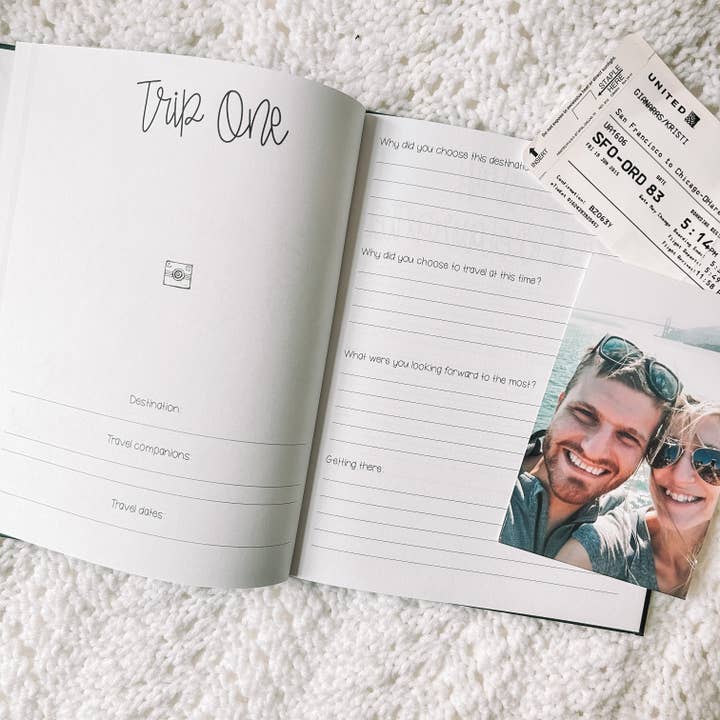 Trip One
Destination:
Travel companions:
Travel dates:
Why did you choose this destination
Why did you choose to travel at this time?
What were you looking forward to the most?
Getting there:
STAPLE
HERE
INSERT
UNITED
GIANARAS/KRISTI
San Francisco to Chicago-OHare
UA1606
SFO-ORD 83
5:14PM
Gate May Change
Confirmation: BZ063Y